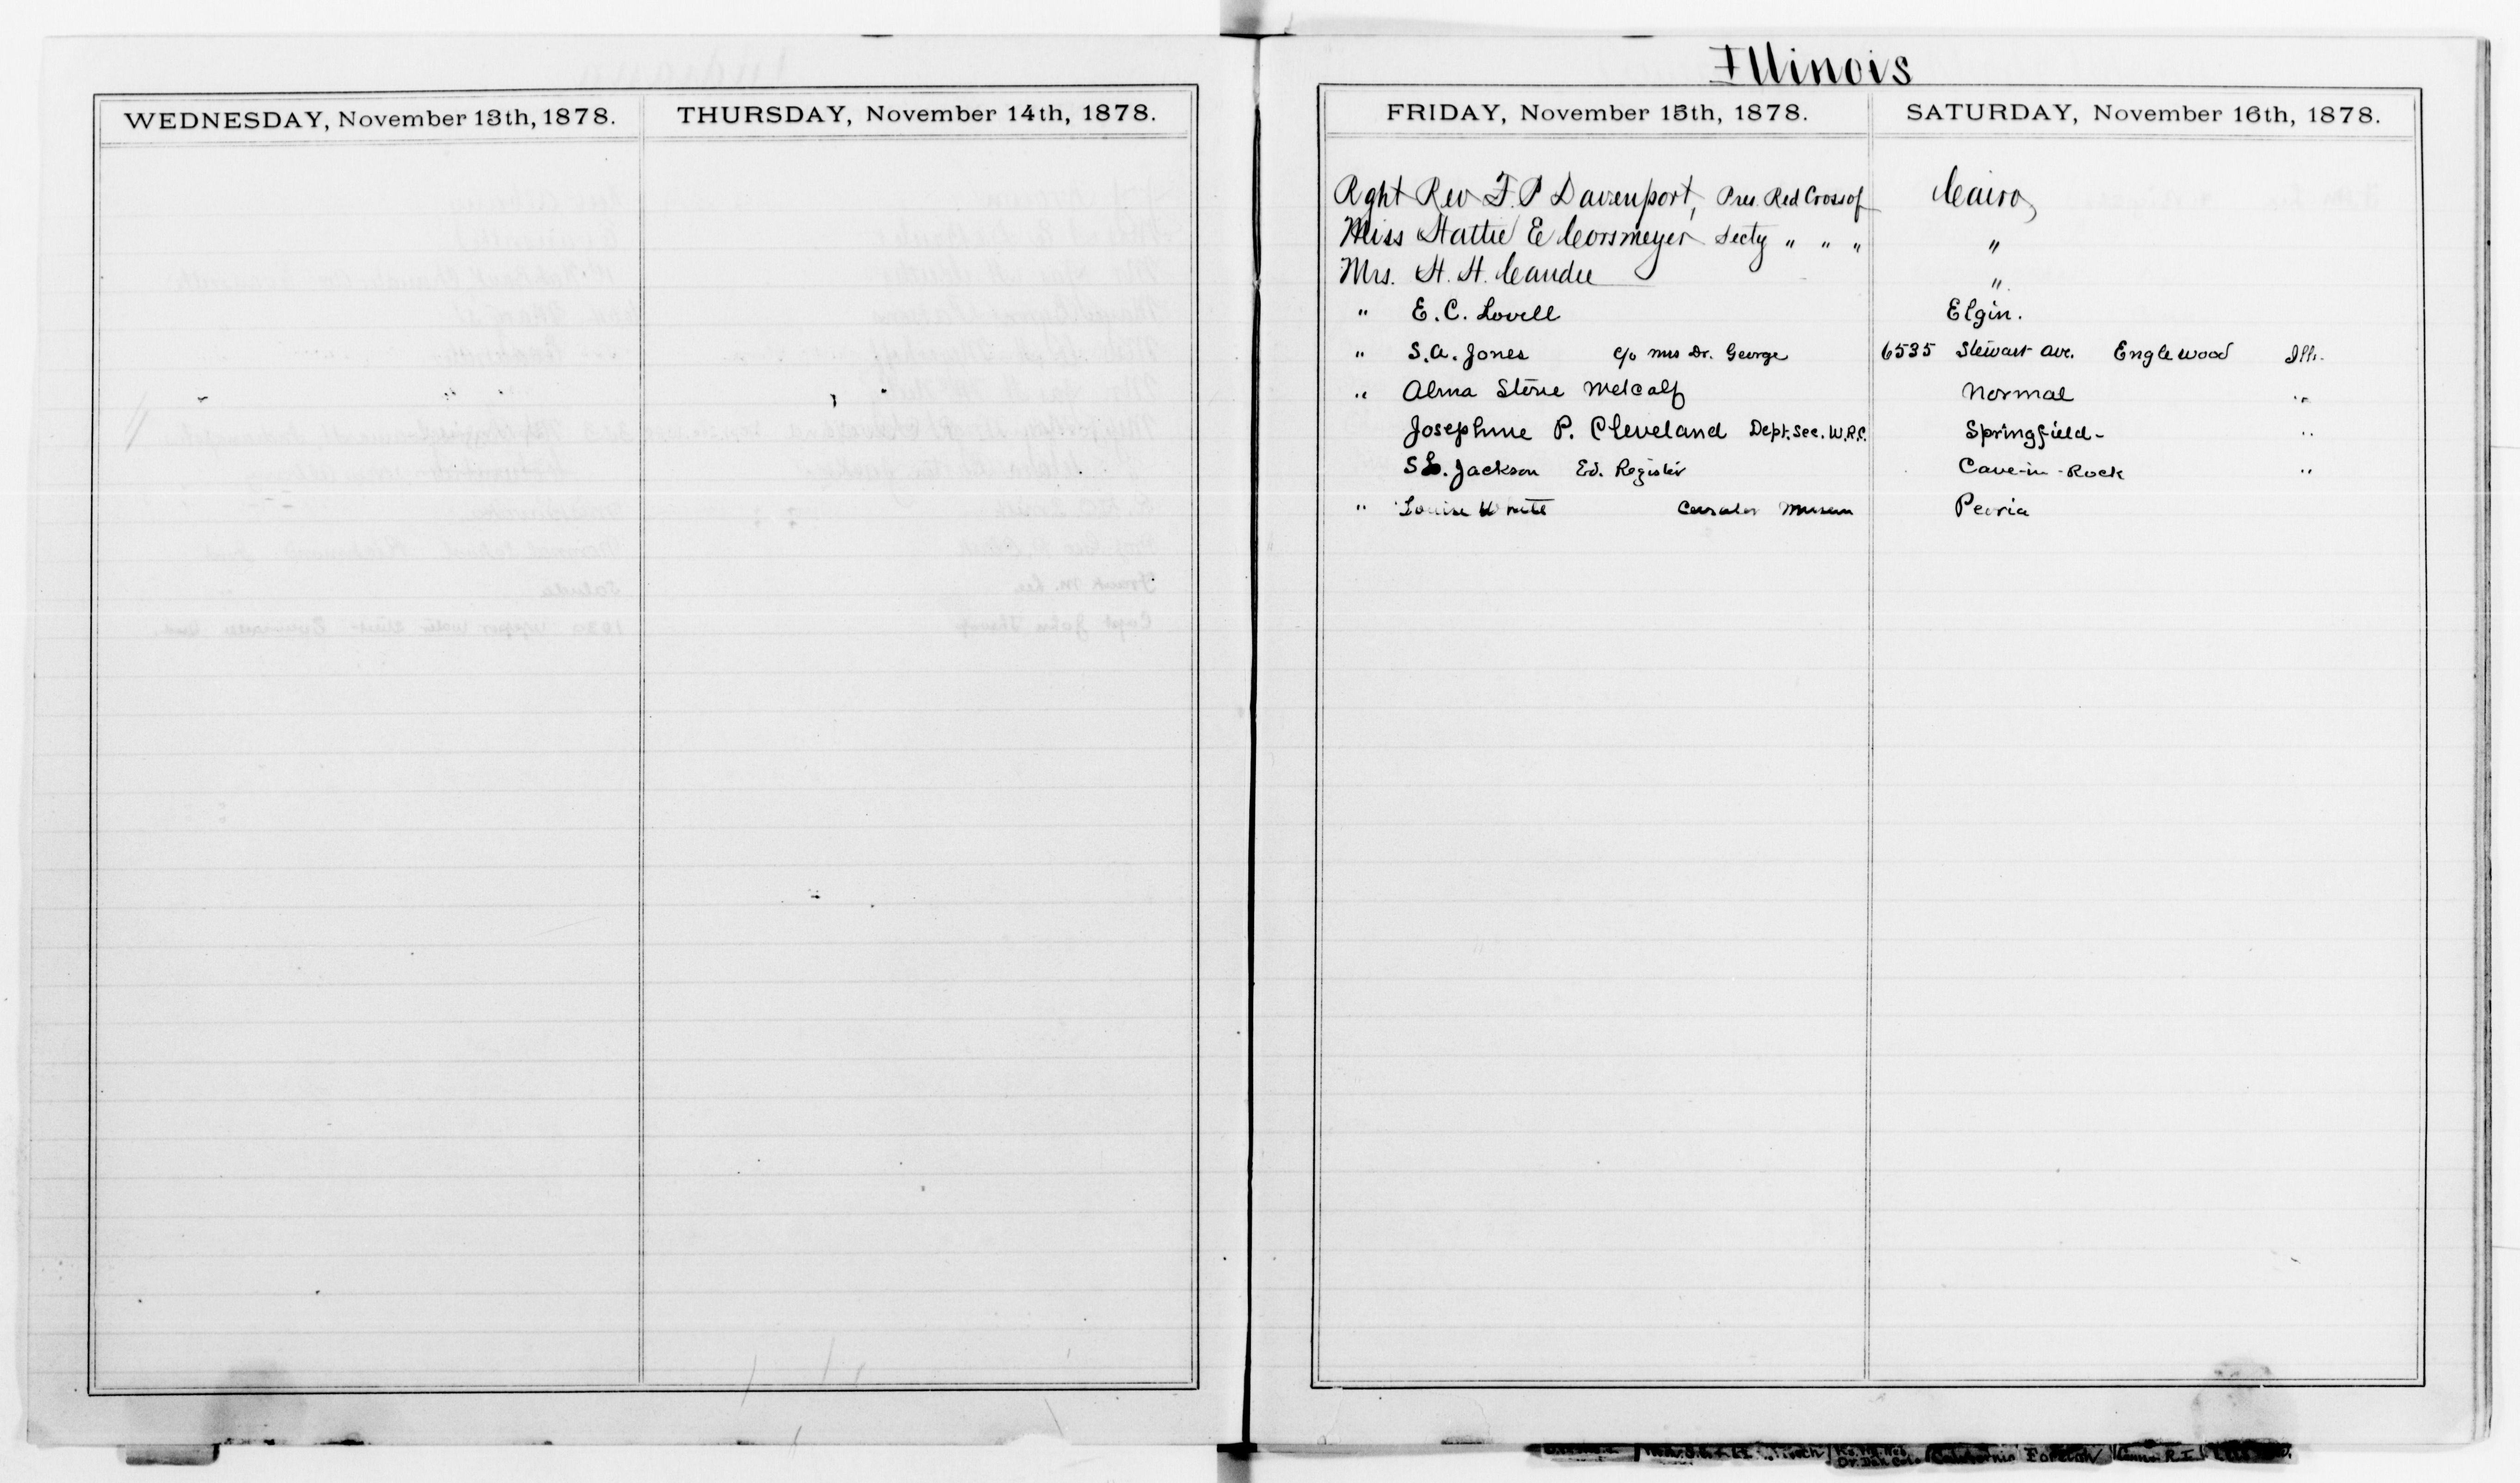 Illinois
WEDNESDAY, November 13th, 1878. THURSDAY, November 14th, 1878. FRIDAY, November 15th, 1878. SATURDAY, November 16th, 1878.
Rght Rev F. P Davenport, Pres. Red Cross of Cairo,
Miss Hattie E Corsmeyer Secty " " " "
Mrs. H. H. Candee "
" E. C. Lovell Elgin.
" S. A. Jones c/o Mrs Dr. George 6535 Stewart Ave. Englewood Ills.
" Alma Stone Metcalf Normal "
Josephine P. Cleveland Dept. Sec. W.R.C. Springfield - "
S L. Jackson Ed. Register Cave-in-Rock "
" Louise White Museum Peoria